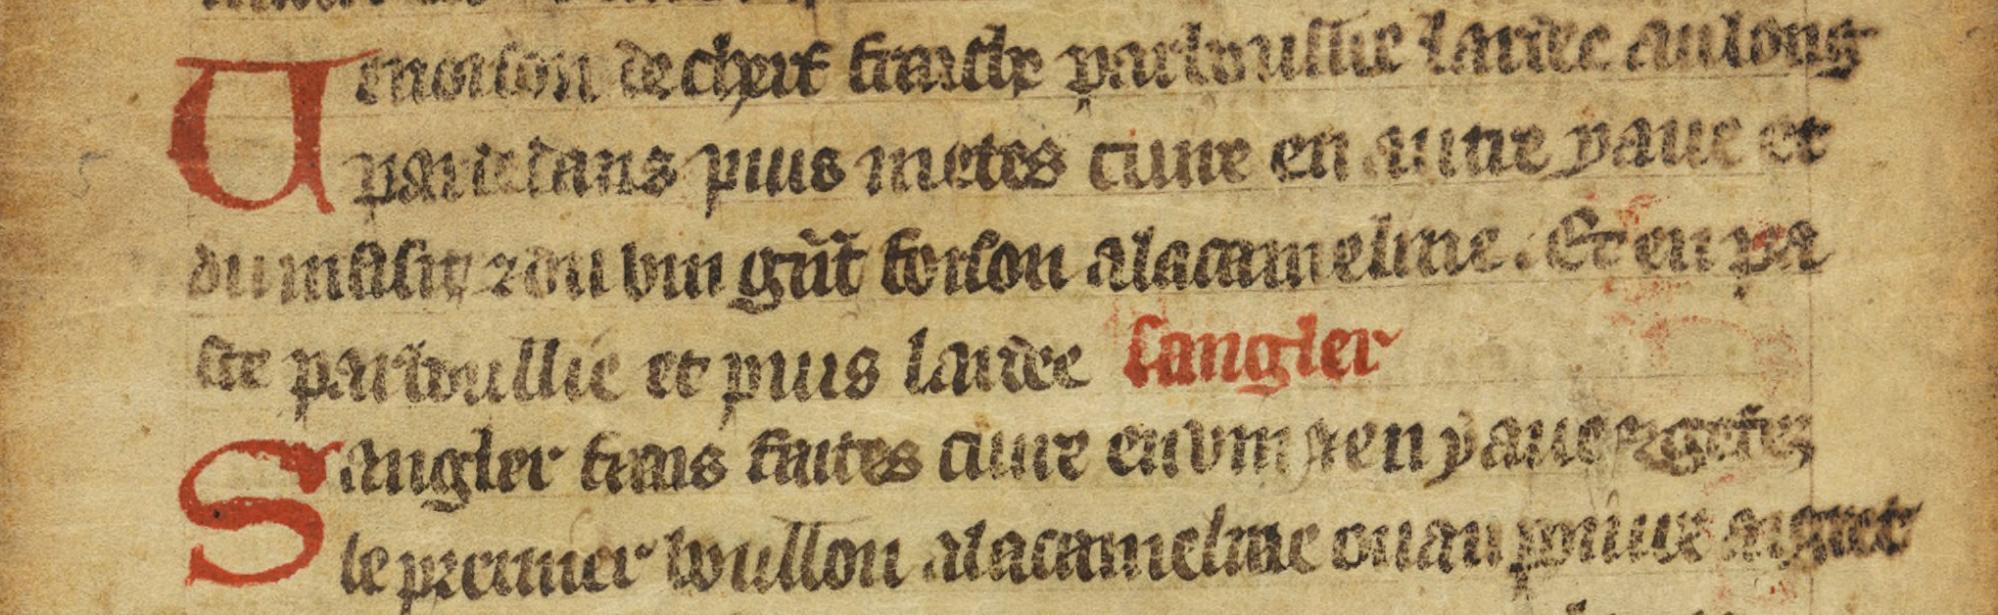 Venoison de cherf fresche parboullie lardee au long
par dedans puis metes cuire en autre yaue et
du vin gnt foison a la cameline. Et en pa
ste parboullie et puis lardee sangler
Sangler frais faites cuire en vin & en yaue &
le premier boullon a la cameline ou au poivre aigret